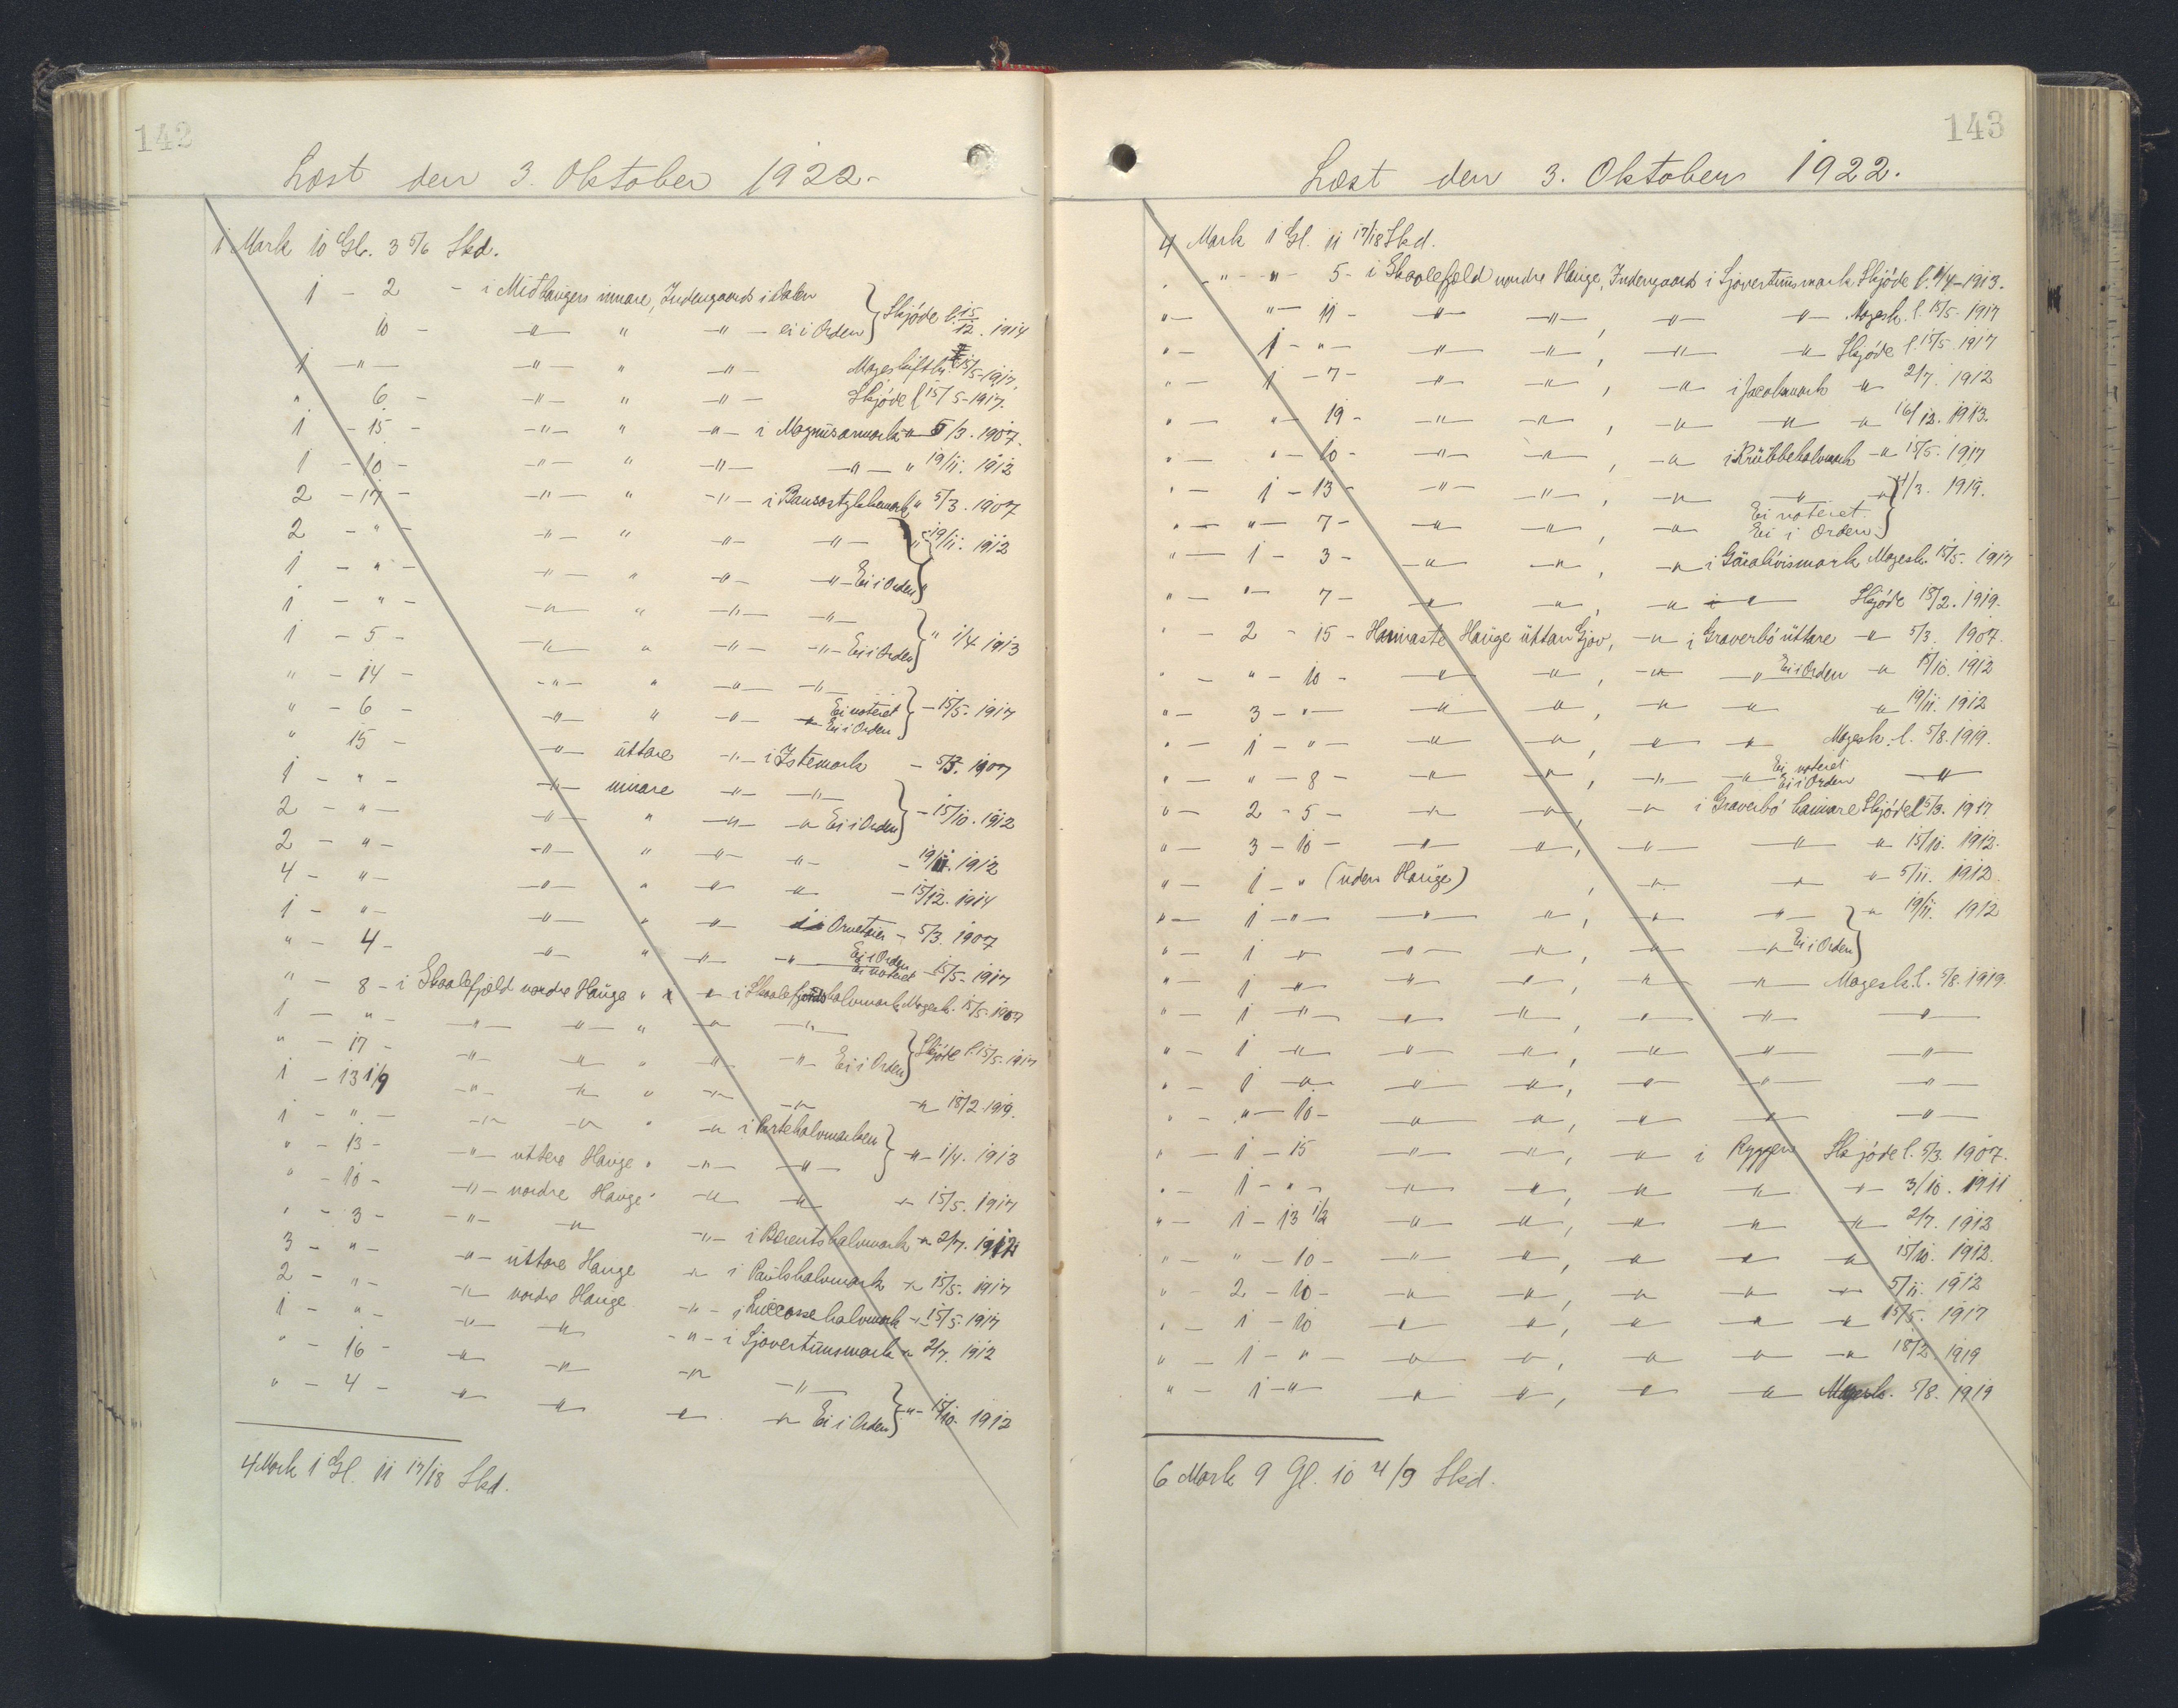 142
Læst den 3. Oktober 1922.-
1 Mark 10 Gl. 3 5/6 Skd.
1 - 2 - i Midhaugers innare, Indengaards i Dalen } Skjöde l. 15/12. 1914
10 - -"- " -"- ei i Orden }
1 - " - -"- " -"- Mageskiftbr. 15/5-1917.
" 6 - -"- " -"- Skjöde l 15/5-1917.
1 - 15 - -"- " -"- i Magnusarmark -"- 5/3. 1907.
1 - 10 - -"- " -"- -"- " 19/11. 1912
2 - 17 - -"- " -"- i " 5/3. 1907
2 - " - -"- " -"- -"- } " 19/11. 1912
1 - " - -"- " -"- -"- Ei i Orden }
1 - " - -"- " -"- -"- } " 1/4 1913
1 - 5 - -"- " -"- -"- Ei i Orden }
" - 14 - -"- " -"- -"- } - 15/5. 1917
" - 6 - -"- " -"- -"- Ei noteret Ei i Orden }
" 15 - -"- úttare -"- i Istemark - 5/3. 1907
1 - " - -"- innare -"- -"- } - 15/10. 1912
2 - " - -"- " -"- -"- Ei i Orden }
2 - " - -"- " -"- -"- - 19/11. 1912
4 - " - -"- " -"- -"- - 15/12. 1914
1 - " - -"- " -"- i - 5/3. 1907
" - 4 - -"- " -"- -"- Ei i Orden Ei noteret - 15/5. 1917
" - 8 - i Skaalefjæld nordre Haúge " -"- i Magesk. 15/5. 1907
1 - " - -"- -"- " -"- -"- } Skjöde l. 15/5. 1917
" - 17 - -"- -"- " -"- -"- Ei i Orden }
1 - 13 1/9 -"- -"- " -"- -"- -"- 18/2 1919.
1 - " - -"- -"- " -"- i Partehalvmarken } -"- 1/4. 1913
" - 13 - -"- úttere Hauge " -"- -"- }
" - 10 - -"- nordre Hauge " -"- -"- -"- 15/5. 1917
" - 3 - -"- -"- -"- i Berentshalvmark -"- 2/7. 1912
3 - " - -"- úttare Hauge -"- i Paúlshalvmark -"- 15/5. 1917
2 - " - -"- nordre Hauge -"- i Luccassehalvmark -"- 15/5. 1917
1 - " - -"- -"- -"- i Sjovertúnsmark -"- 2/7. 1912
" - 16 - -"- -"- -"- -"- } -"- 15/10. 1912
" - 4 - -"- -"- -"- -"- Ei i Orden }
4 Mark 1 Gl. 11 17/18 Skd.
143
Læst den 3. Oktober 1922.
4 Mark 1 Gl. 11 17/18 Skd.
" - " - 5 - i Skaalefjeld nordre Haúge, Indengaards i Sjovertúnsmark Skjöde l. 1/4-1913.
" - " - 11 - -"- -"- , -"- -"- Magesk. l. 15/5. 1917
" - 1 - " - -"- -"- , -"- -"- Skjöde l. 15/5. 1917
" - 1 - 7 - -"- -"- , -"- i Jacobsmark -"- 2/7. 1912
" - " - 19 - -"- -"- , -"- -"- -"- 16/12. 1913.
" - " - 10 - -"- -"- , -"- i Krúbbehalvmark -"- 15/5. 1917
" - 1 - 13 - -"- -"- , -"- -"- -"- } 4/3. 1919.
" - " - 7 - -"- -"- , -"- Ei noteret. Ei i Orden }
" - 1 - 3 - -"- -"- , -"- i Magesk. 15/5. 1917
" - " - 7 - -"- -"- , -"- -"- Skjöde 18/2. 1919.
" - 2 - 15 - Haimaste Haúge úttan Gjov, -"- i Graverbö úttare -"- 5/3. 1907.
" - " - 10 - -"- -"- , -"- -"- Ei i Orden -"- 15/10. 1912
" - 3 - " - -"- -"- , -"- -"- -"- 19/11. 1912
" - 1 - " - -"- -"- , -"- -"- Magesk. l. 5/8. 1919.
" - " - 8 - -"- -"- , -"- -"- Ei noteret Ei i Orden -"-
" - 2 - 5 - -"- -"- , -"- i Graverbö haimare Skjöde l 5/3. 1917
" - 3 - 10 - -"- -"- , -"- -"- -"- 15/10. 1912.
" - 1 - " (uden Haúge) , -"- -"- -"- 5/11. 1912
" - 1 - " - -"- -"- , -"- -"- } -"- 19/11. 1912
" - 1 -"- -"- -"- , -"- -"- Ei i Orden }
" - 1 -"- -"- -"- , -"- -"- Magesk. l. 5/8. 1919.
" - 1 -"- -"- -"- , -"- -"- -"-
" - 1 -"- -"- -"- , -"- -"- -"-
" - 1 -"- -"- -"- , -"- -"- -"-
" - " - 10 - -"- -"- , -"- -"- -"-
" - 1 - 15 -"- -"- , -"- i Ryggen Skjöde l. 5/3. 1907.
" - 1 - " - -"- -"- , -"- -"- -"- 3/10. 1911
" - 1 - 13 1/2 -"- -"- , -"- -"- -"- 2/7. 1912
" - " - 10 - -"- -"- , -"- -"- -"- 15/10. 1912.
" - 2 - 10 - -"- -"- , -"- -"- -"- 5/11. 1912
" - 1 - 10 -"- -"- , -"- -"- -"- 15/5. 1917
" - 1 - " - -"- -"- , -"- -"- -"- 18/2. 1919
" - 1 -"- -"- -"- , -"- -"- Magesk. 5/8. 1919
6 Mark 9 Gl. 10 4/9 Skd.